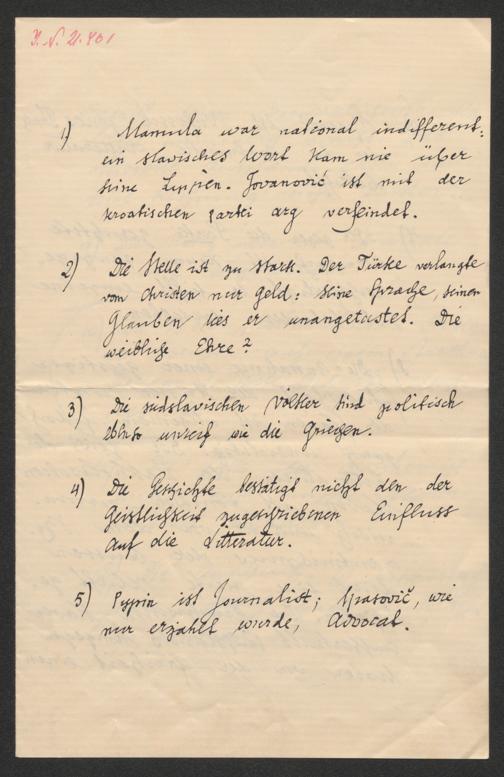 I. N. 21.401
1) Mamula war national indifferent:
ein slavisches Wort kam nie über
seine Lippen. Jovanović ist mit der
kroatischen Partei arg verfeindet.
2) Die Stelle ist zu stark. Der Türke verlangte
vom Christen nur Geld: seine Sprache, seinen
Glauben lies er unangetastet. Die
weibliche Ehre?
3) Die südslavischen Völker sind politisch
ebenso unreif wie die Griechen.
4) Die Geschichte bestätigt nicht den der
Geistlichkeit zugeschriebenen Einfluss
auf die Litteratur.
5) Pypin ist Journalist; Spasovič, wie
mir erzählt wurde, Advocat.